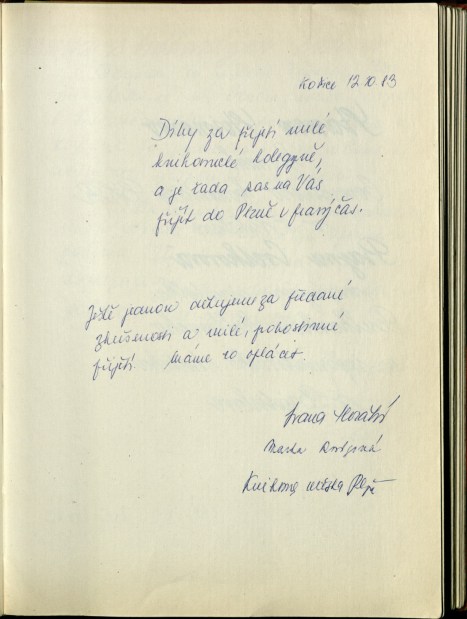 Košice 12.10.83
Díky za přijetí milé
knihovnické kolegyně,
a je řada zas na Vás
přijít do Plzně v pravý čas.
Ještě jednou děkujeme za předané
zkušenosti a milé, pohostinné
přijetí. Máme co oplácet.
Ivana Horáková
Marta
Knihovna města Plzně